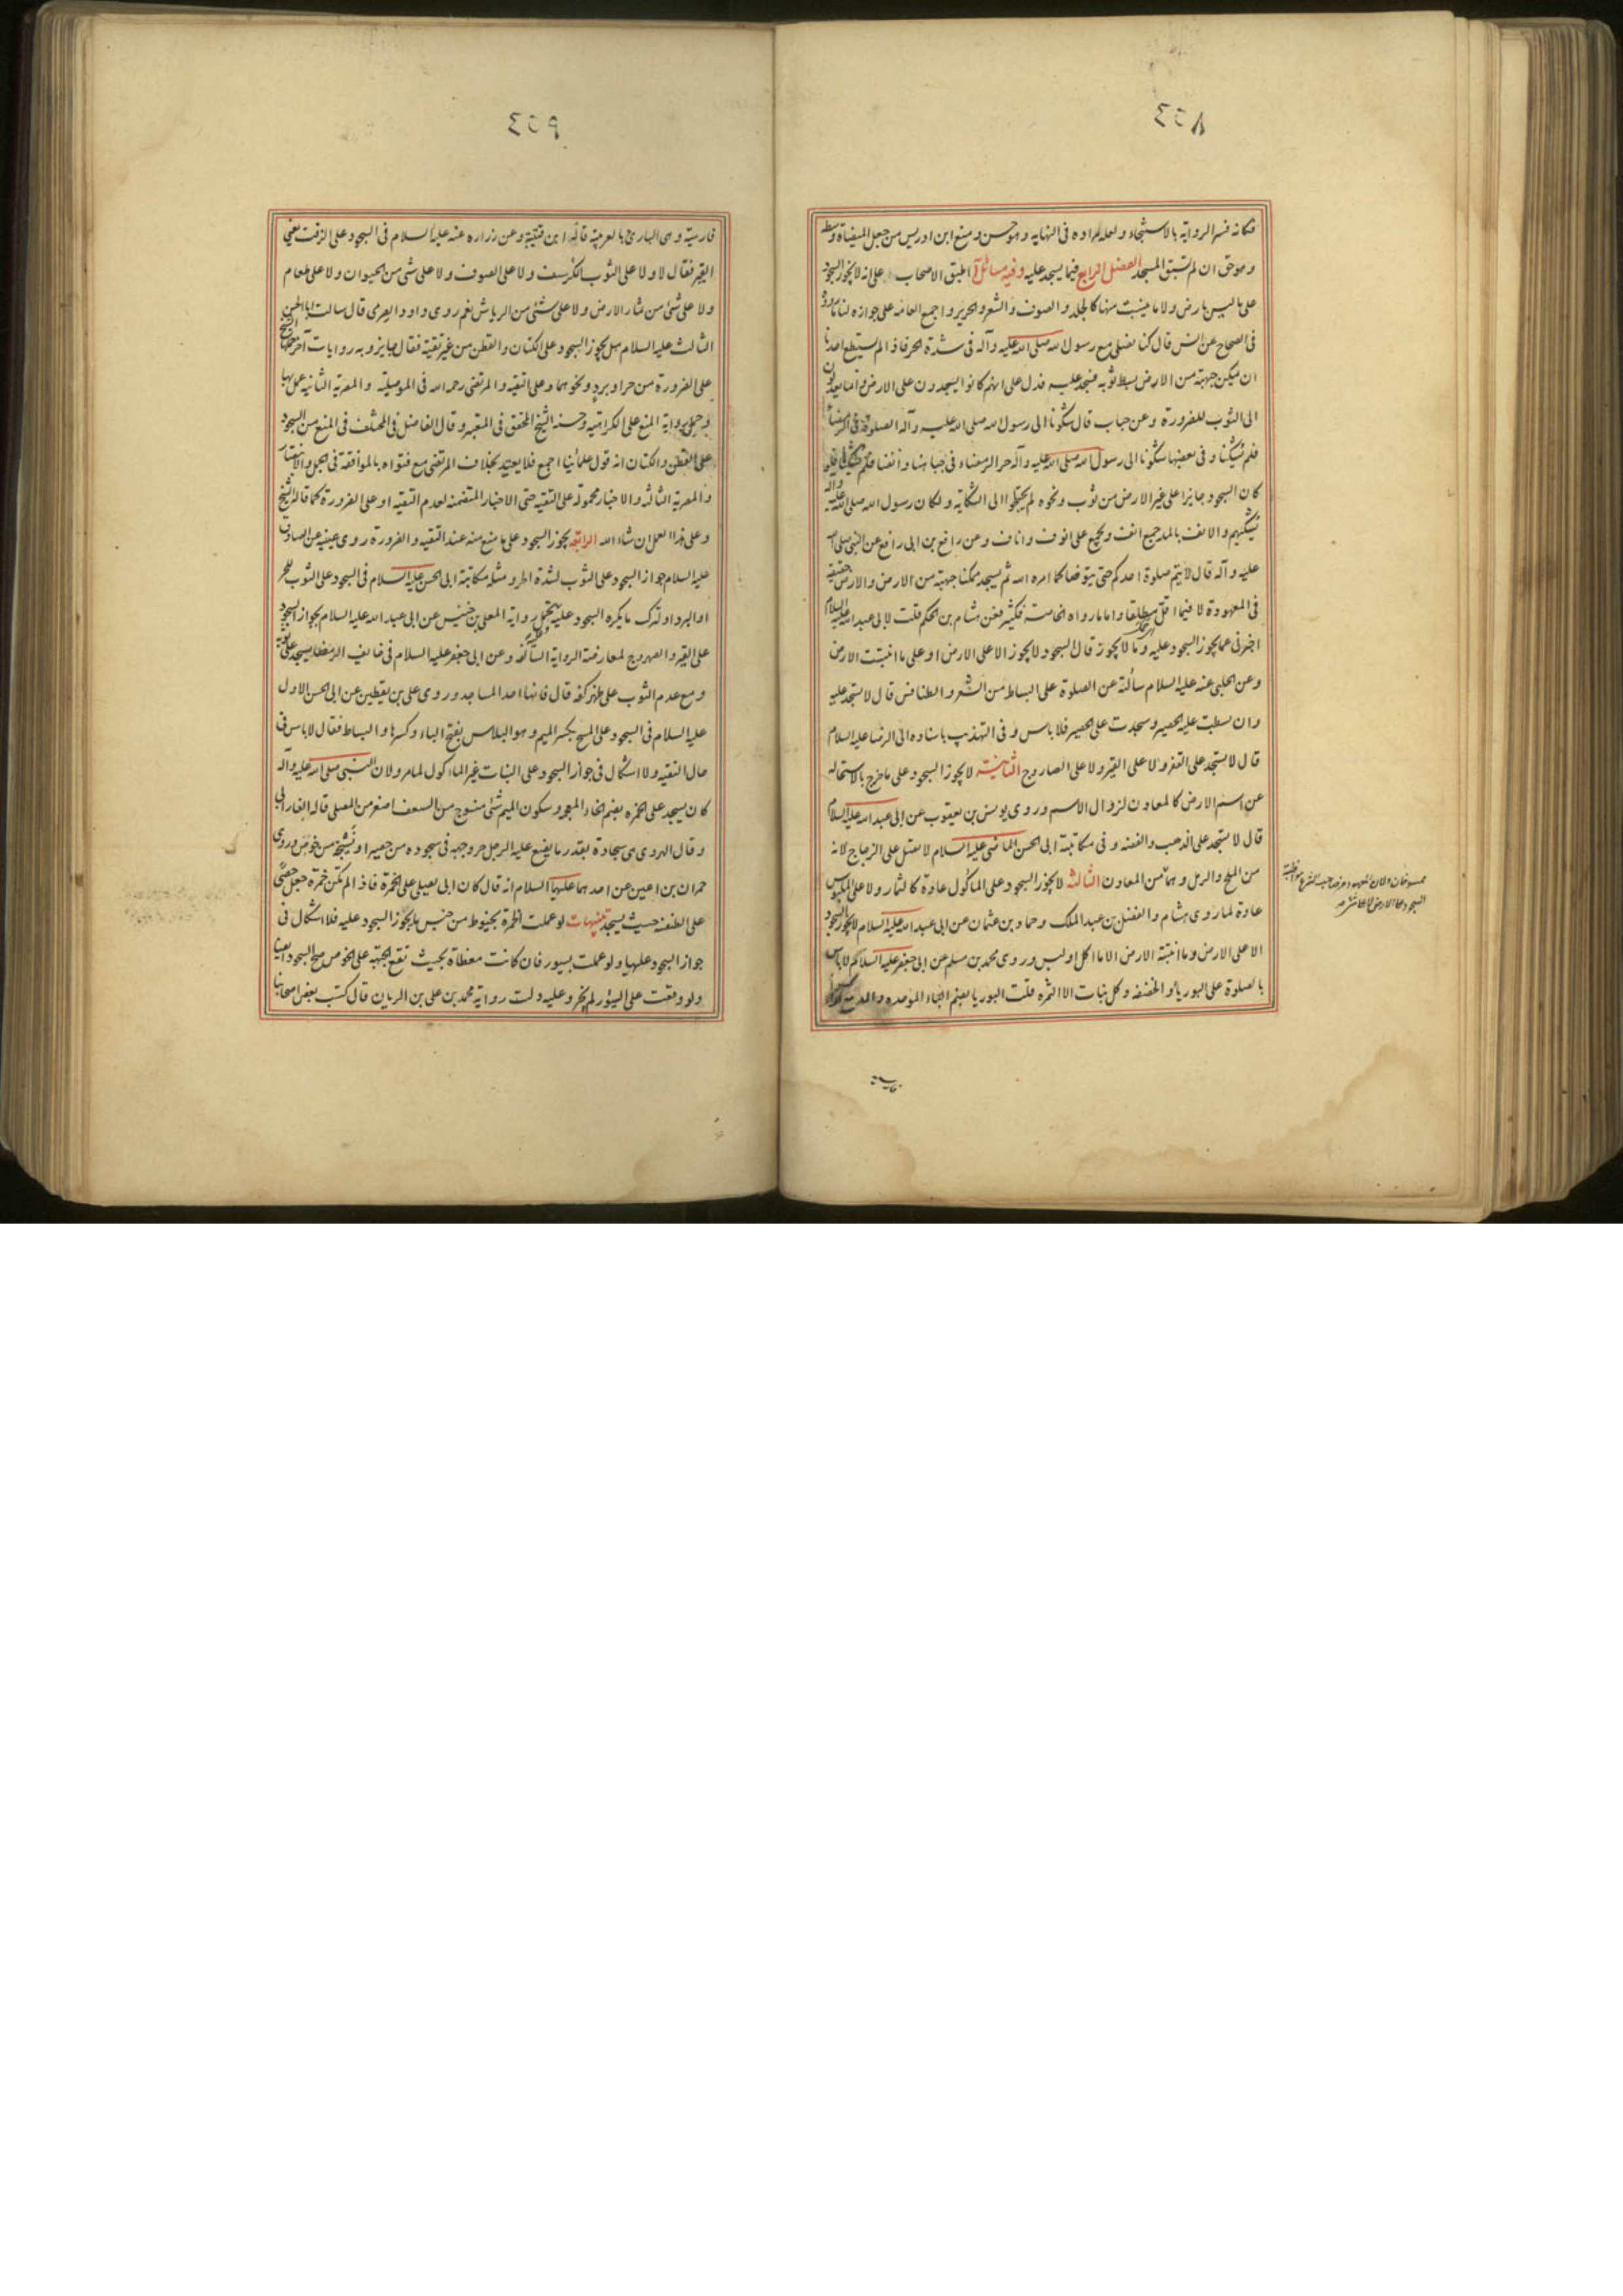 فكانه فسر الرواية بالاستنجاء ولعله مراده فى النهاية وهو حسن ومنع ابن ادريس من جعل الميضاة وسطه
وهو حق ان لم يسبق المسجد الفصل الرابع فيما يسجد عليه وفيه مسائل آ اطبق الاصحاب على انه لا يجوز السجود
على ما ليس بارض ولا ما ينبت منها كالجلد والصوف والشعر والحرير واجمع العامه على جوازه لنا ما رووه
فى الصحاح عن انس قال كنا نصلى مع رسول الله صلى الله عليه وآله فى شدة الحر فاذا لم يستطع احدنا
ان يمكن جبهته من الارض بسط ثوبه فسجد عليه فدل على انهم كانوا يسجدون على الارض وانما يعدلون
الى الثوب للضرورة وعن خباب قال شكونا الى رسول الله صلى الله عليه وآله الصلوة فى الرمضاء
فلم يشكنا وفى بعضها شكونا الى رسول الله صلى الله عليه وآله حر الرمضاء فى جباهنا وانفنا فلم يشكنا فلو
كان السجود جايزا على غير الارض من ثوب ونحوه لم يحتاجوا الى الشكاية ولكان رسول الله صلى الله عليه واله
يشكيهم والانف بالمد جمع انف ويجمع على انوف واناف وعن رافع بن ابى رافع عن النبى صلى الله
عليه وآله قال لا يتم صلوة احدكم حتى يتوضا كما امره الله ثم يسجد ممكنا جبهته من الارض والارض حقيقة
فى المعهودة لا فيما اقل مطلقا واما ما رواه الخاصة فكثير فعن هشام بن الحكم قلت لابى عبد الله عليه السلام
اخبرنى عما يجوز السجود عليه وما لا يجوز قال السجود لا يجوز الا على الارض او على ما انبتت الارض
وعن الحلبى عنه عليه السلام سألته عن الصلوة على البساط من الشعر والطنافس قال لا تسجد عليه
وان بسطت عليه الحصير وسجدت على الحصير فلا باس وفى التهذيب باسناده الى الرضا عليه السلام
قال لا تسجد على القفر ولا على القير ولا على الصاروج الثانية لا يجوز السجود على ما خرج بالاستحالة
عن اسم الارض كالمعادن لزوال الاسم وروى يونس بن يعقوب عن ابى عبد الله عليه السلام
قال لا تسجد على الذهب والفضه وفى مكاتبة ابى الحسن الماضى عليه السلام لا تصل على الزجاج لانه
من الملح والرمل وهما من المعادن الثالثة لا يجوز السجود على الماكول عادة كالثمار ولا على الملبوس
عادة لما روى هشام والفضل بن عبد الملك وحماد بن عثمان عن ابى عبد الله عليه السلام لا يجوز السجود
الا على الارض وما انبتته الارض الا ما اكل او لبس وروى محمد بن مسلم عن ابى جعفر عليه السلام لا باس
بالصلوة على البوريا والخصفه وكل نبات الا الثمره قلت البوريا بضم الباء الموحده
ممسوخان ولان المعهود
السجود على الارض
فارسية
فارسية وهى البارى بالعربية قاله ابن قتيبة وعن زرارة عنه عليه السلام فى السجود على الزفت يعنى
القير فقال لا ولا على الثوب الكرسف ولا على الصوف ولا على شئ من الحيوان ولا على طعام
ولا على شئ من ثمار الارض ولا على شئ من الرياش نعم روى داود الصرمى قال سالت ابا الحسن
الثالث عليه السلام هل يجوز السجود على الكتان والقطن من غير تقية فقال جايز وبه روايات آخر حملها الشيخ
على الضرورة من حر او برد ونحوهما وعلى التقيه والمرتضى رحمه الله فى الموصلية والمصرية الثانيه عمل بها
وحمل رواية المنع على الكراهية وحسنه الشيخ المحقق فى المعتبر وقال الفاضل فى المختلف فى المنع من السجود
على القطن والكتان انه قول علمائنا اجمع فلا يعتد بخلاف المرتضى مع فتواه بالموافقة فى الجمل والانتصار
والمصرية الثالثه والاخبار محمولة على التقيه حتى الاخبار المتضمنه لعدم التقيه او على الضرورة كما قاله الشيخ
وعلى هذا العمل ان شاء الله الرابعة يجوز السجود على ما منع منه عند التقيه والضرورة روى عيينه عن الصادق
عليه السلام جواز السجود على الثوب لشدة الحر ومثله مكاتبة ابى الحسن عليه السلام فى السجود على الثوب للحر
او البرد او لترك ما يكره السجود عليه وعليه يحمل رواية المعلى بن خنيس عن ابى عبد الله عليه السلام بجواز السجود
على القير والصهروج لمعارضة الرواية السالفة وعن ابى جعفر عليه السلام فى خايف الرمضا يسجد على ثوبه
ومع عدم الثوب على ظهر كفه قال فانها احد المساجد وروى على بن يقطين عن ابى الحسن الاول
عليه السلام فى السجود على المسح بكسر الميم وهو البلاس بفتح الباء وكسرها والبساط فقال لا باس فى
حال التقيه ولا اشكال فى جواز السجود على النبات غير الماكول لما مر ولان النبى صلى الله عليه وآله
كان يسجد على الخمره بضم الخاء المعجمه وسكون الميم شئ منسوج من السعف اصغر من المصلى قاله الفارابى
وقال الهروى هى سجادة بقدر ما يضع عليه الرجل حر وجهه فى سجوده من حصير او نسيجة من خوص وروى
حمران بن اعين عن احدهما عليهما السلام انه قال كان ابى يصلى على الخمرة فاذا لم تكن خمرة جعل حصى
على الطنفسه حيث يسجد تنبيهات لو عملت الخمرة بخيوط من جنس ما يجوز السجود عليه فلا اشكال فى
جواز السجود عليها ولو عملت بسيور فان كانت مغطاة بحيث تقع الجبهة على الخوص صح السجود ايضا
ولو وقعت على السيور لم يجز وعليه دلت رواية محمد بن على بن الريان قال كتب بعض اصحابنا